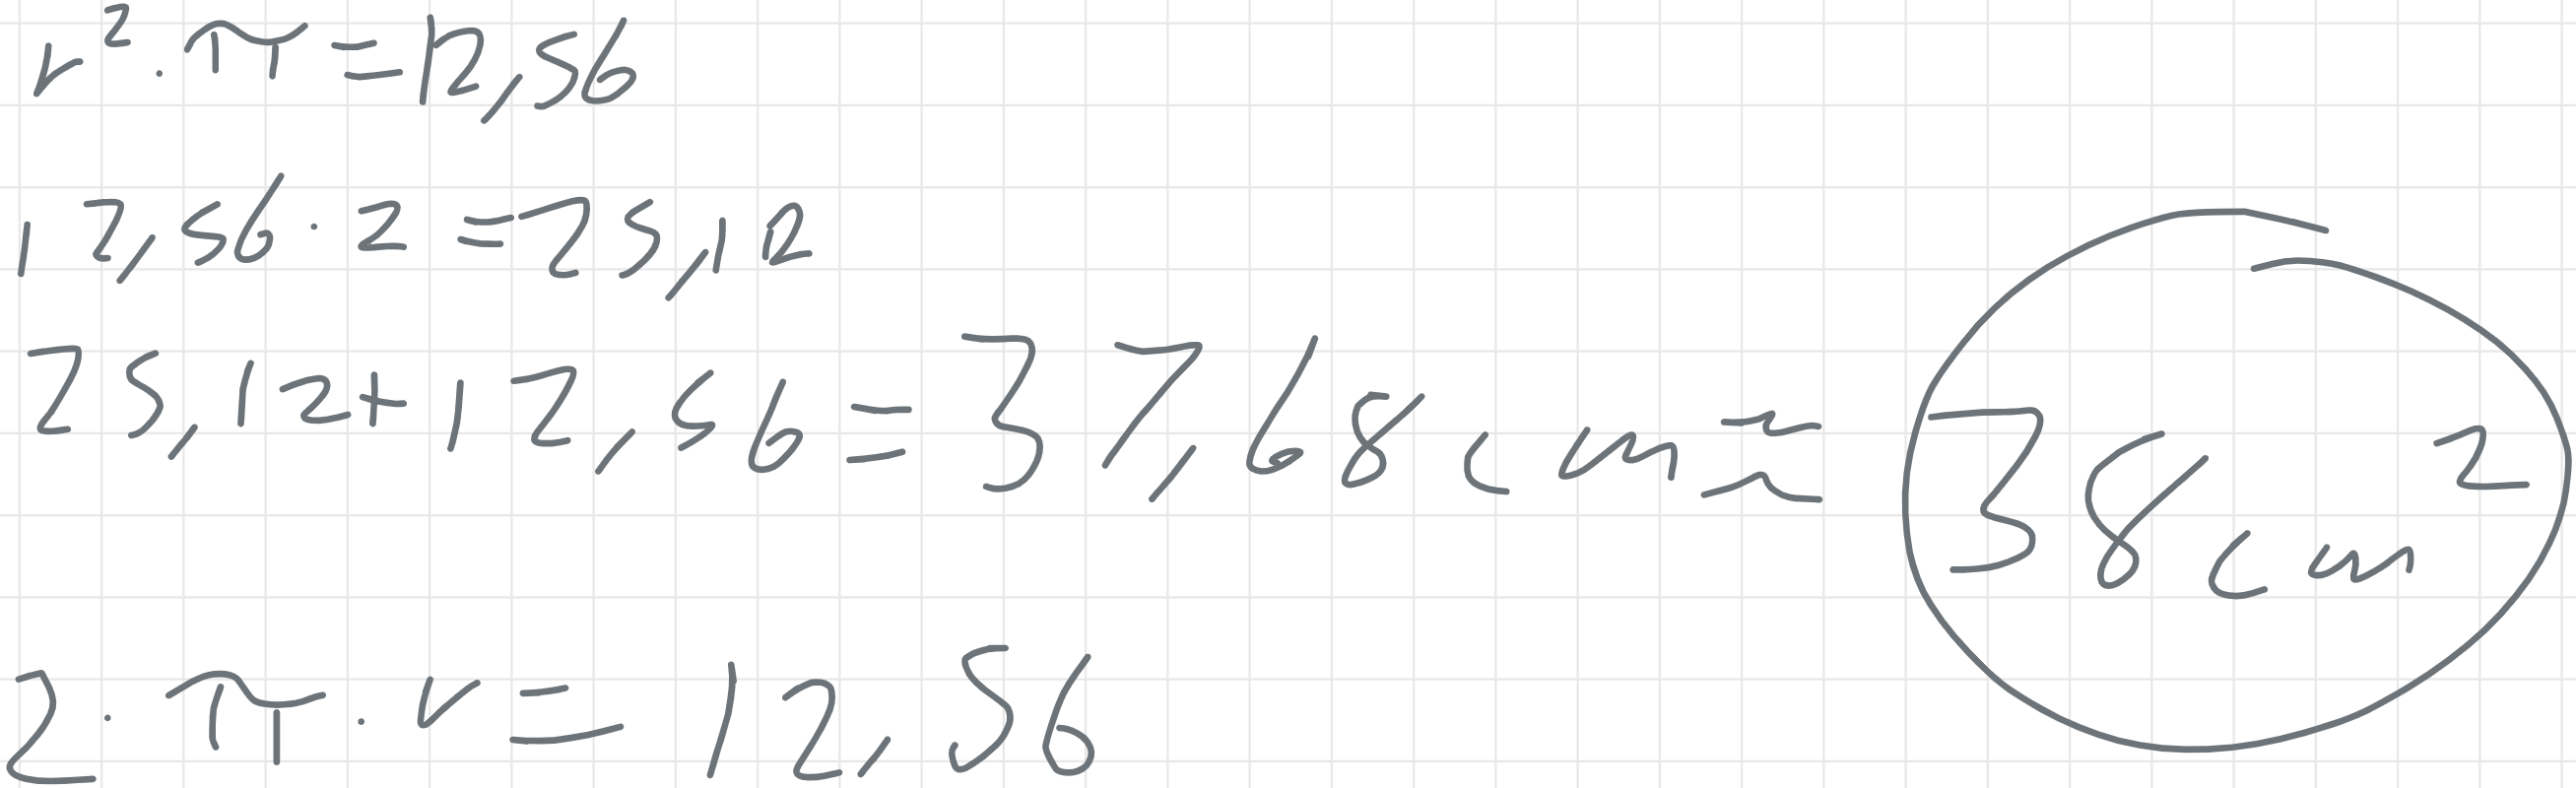 r² · π = 12,56
12,56 · 2 = 25,12
25,12 + 12,56 = 37,68 cm ≈ 38 cm²
2 · π · r = 12,56